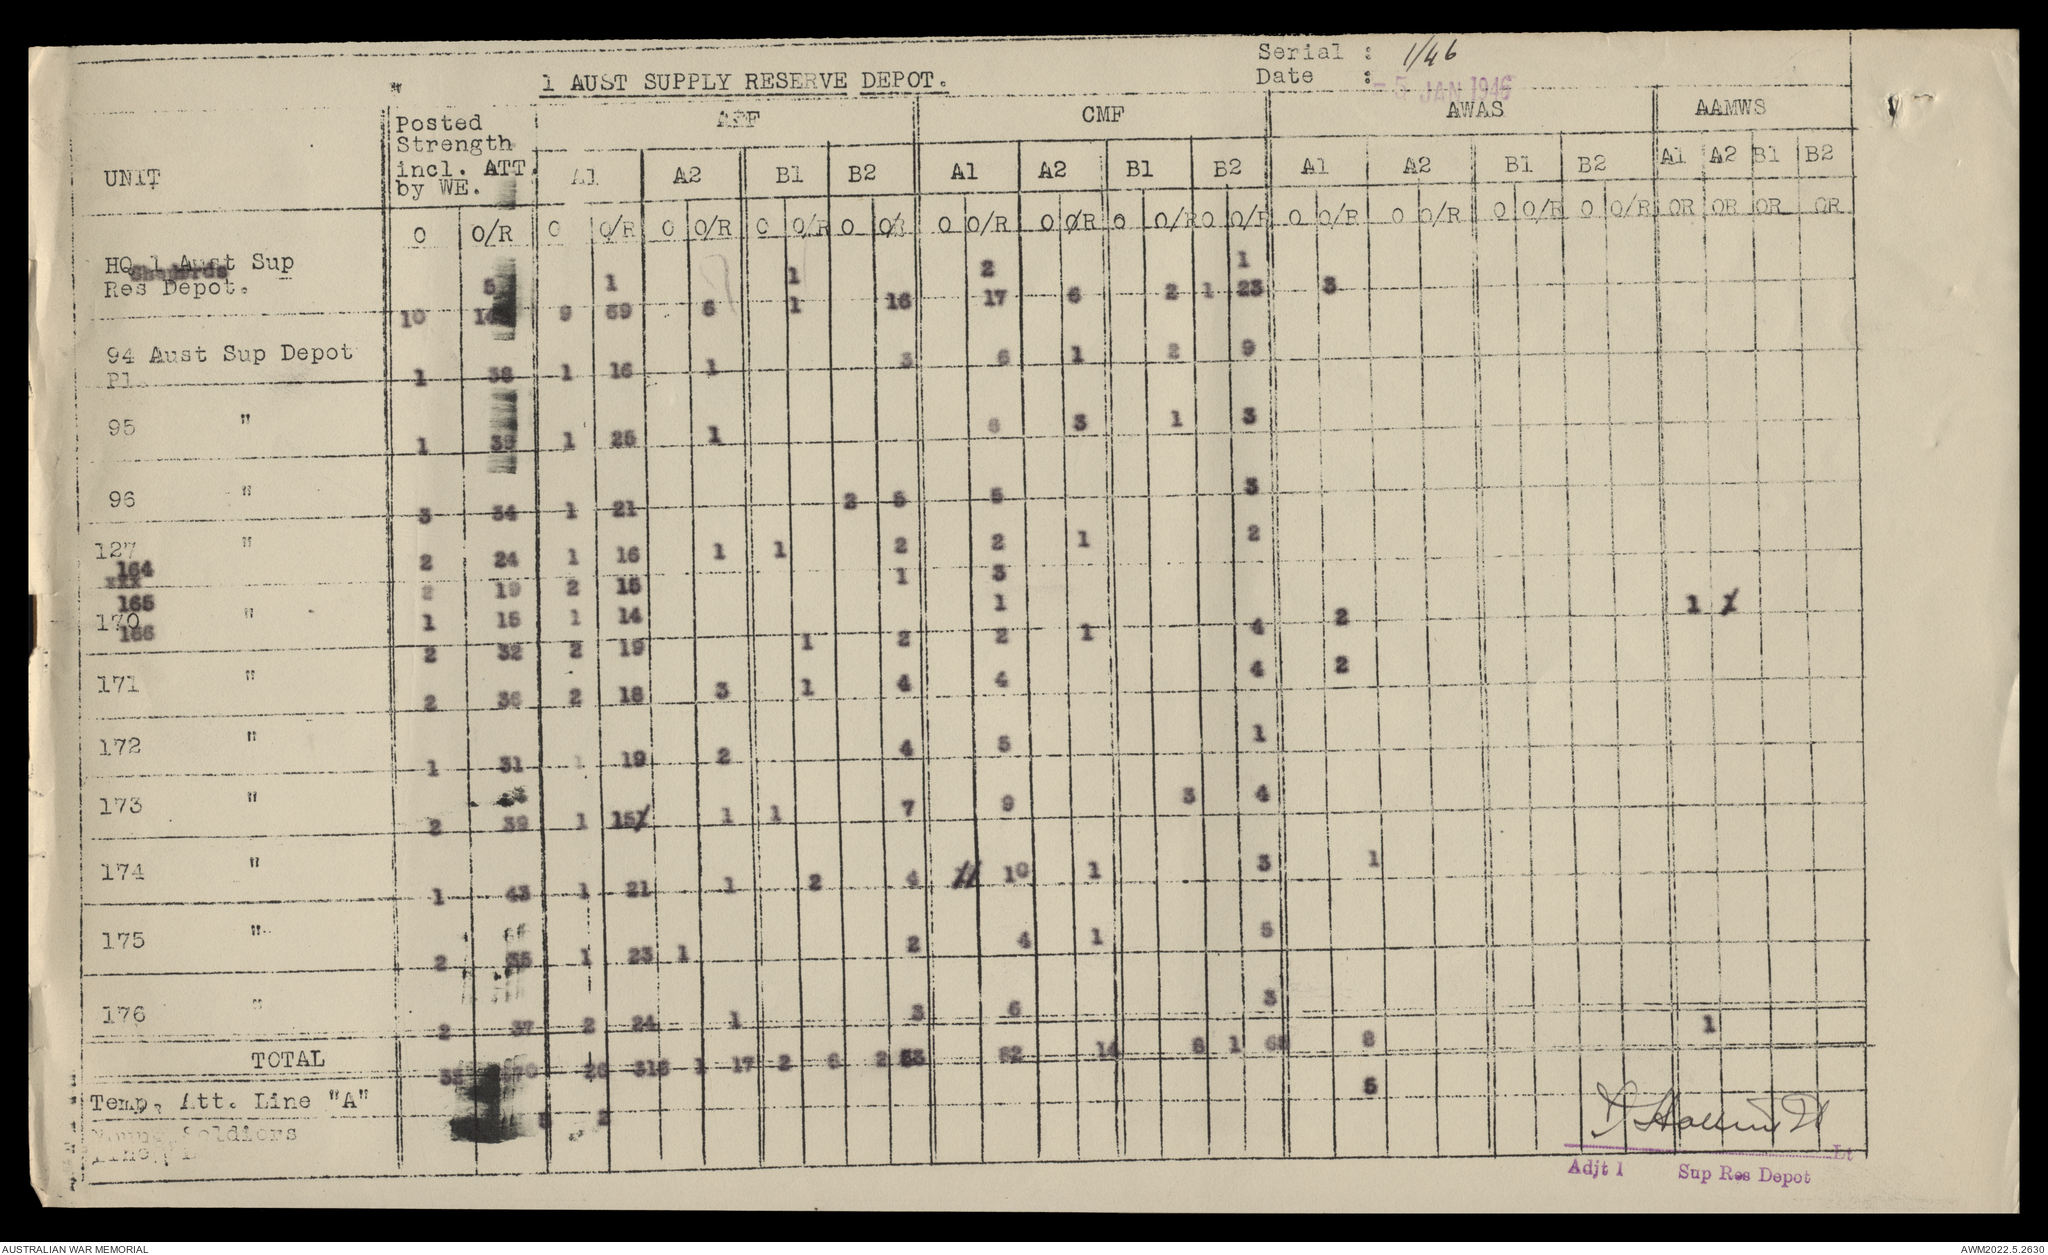 Serial : 1/46
1 AUST SUPPLY RESERVE DEPOT.
Date : - 5 JAN 1946
UNIT
Posted
Strength
incl. ATT.
by WE.
AIF CMF AWAS AAMWS
A1 A2 B1 B2 A1 A2 B1 B2 A1 A2 B1 B2 A1 A2 B1 B2
O O/R O O/R O O/R O O/R O O/R O O/R O O/R O O/R O O/R O O/R O O/R O O/R O O/R OR OR OR OR
HQ 1 Aust Sup
5 1 1 2 1
Res Depot.
10 9 69 6 1 16 17 6 2 1 23 3
94 Aust Sup Depot
Pl.
1 38 1 16 1 3 6 1 2 9
95 "
1 39 1 25 1 6 3 1 3
96 "
3 34 1 21 2 5 5 3
127 "
2 24 1 16 1 1 2 2 1 2
164
xxx
2 19 2 15 1 3
165
170 "
1 15 1 14 1 2 1
166
2 32 2 19 1 2 2 1 4
171 "
2 36 2 18 3 1 4 4 4 2
172 "
1 31 1 19 2 4 5 1
173 "
2 39 1 15 1 1 7 9 3 4
174 "
1 43 1 21 1 2 4 10 1 3 1
175 "
2 35 1 23 1 2 4 1 5
176 "
2 37 2 24 1 3 6 3 1
TOTAL
26 1 17 2 6 2 53 14 8 1 8
Temp. Att. Line "A"
5
Young Soldiers
2
Lt
Adjt 1 Sup Res Depot
AUSTRALIAN WAR MEMORIAL
AWM2022.5.2630